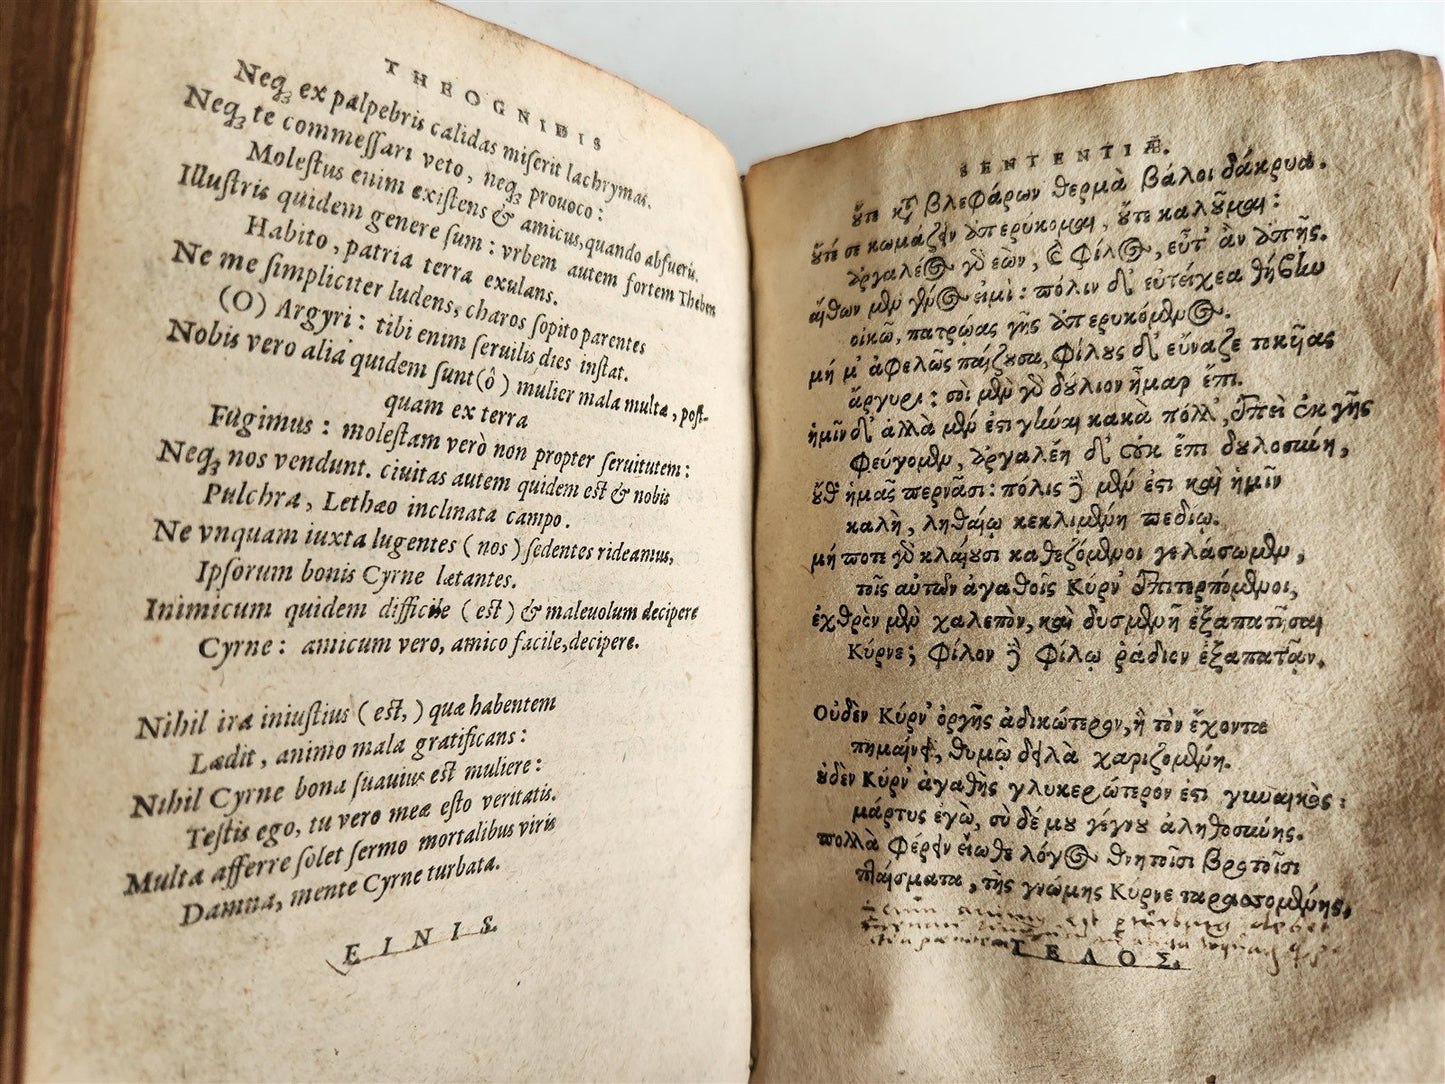 THEOGNIDIS
Neq; ex palpebris calidas miſerit lachrymas.
Neq; te commeſſari veto, neq; prouoco:
Moleſtus enim exiſtens & amicus, quando abfueris.
Illuſtris quidem genere ſum: vrbem autem fortem Theben
Habito, patria terra exulans.
Ne me ſimpliciter ludens, charos ſopito parentes
(O) Argyri: tibi enim ſeruilis dies inſtat.
Nobis vero alia quidem ſunt (ô) mulier mala multa, poſt-
quam ex terra
Fugimus: moleſtam verò non propter ſeruitutem:
Neq; nos vendunt. ciuitas autem quidem eſt & nobis
Pulchra, Lethæo inclinata campo.
Ne vnquam iuxta lugentes (nos) ſedentes rideamus,
Ipſorum bonis Cyrne lætantes.
Inimicum quidem difficile (eſt) & maleuolum decipere
Cyrne: amicum vero, amico facile, decipere.
Nihil iræ iniuſtius (eſt,) quæ habentem
Lædit, animo mala gratificans:
Nihil Cyrne bona ſuauius eſt muliere:
Teſtis ego, tu vero meæ eſto veritatis.
Multa afferre ſolet ſermo mortalibus viris
Damna, mente Cyrne turbata.
FINIS.
SENTENTIÆ.
οὔτε κατὰ βλεφάρων θερμὰ βάλοι δάκρυα.
οὔτέ σε κωμάζειν ἀπερύκομαι, οὔτε καλοῦμαι:
ἀργαλέος γὰρ ἐὼν, καὶ φίλος, εὖτ' ἂν ἀπῇς.
αἴθων μὲν γένος εἰμὶ: πόλιν δ' εὐτείχεα θήβην
οἰκῶ, πατρώας γῆς ἀπερυκόμενος.
μή μ' ἀφελῶς παίζουσα, φίλους δ' εὔναζε τοκῆας
ἄργυρι: σοὶ μὲν γὰρ δούλιον ἦμαρ ἔπι.
ἡμῖν δ' ἄλλα μὲν ἐστι γύναι κακὰ πόλλ', ἐπεὶ ἐκ γῆς
φεύγομεν, ἀργαλέη δ' οὐκ ἔπι δουλοσύνη,
οὔθ' ἡμᾶς περνᾶσι: πόλις γε μὲν ἐστι καὶ ἡμῖν
καλὴ, ληθαίῳ κεκλιμένη πεδίῳ.
μή ποτε γὰρ κλαίουσι καθεζόμενοι γελάσωμεν,
τοῖς αὐτῶν ἀγαθοῖς Κύρν' ἐπιτερπόμενοι,
ἐχθρὸν μὲν χαλεπὸν, καὶ δυσμενῆ ἐξαπατῆσαι
Κύρνε; φίλον δὲ φίλῳ ῥάδιον ἐξαπατᾷν.
Οὐδὲν Κύρν' ὀργῆς ἀδικώτερον, ἣ τὸν ἔχοντα
πημαίνει, θυμῷ δειλὰ χαριζομένη.
οὐδὲν Κύρν' ἀγαθῆς γλυκερώτερον ἐστι γυναικὸς:
μάρτυς ἐγὼ, σὺ δέ μου γίγνου ἀληθοσύνης.
πολλὰ φέρειν εἴωθε λόγος θνητοῖσι βροτοῖσι
πταίσματα, τῆς γνώμης Κύρνε ταρασσομένης,
ΤΕΛΟΣ.